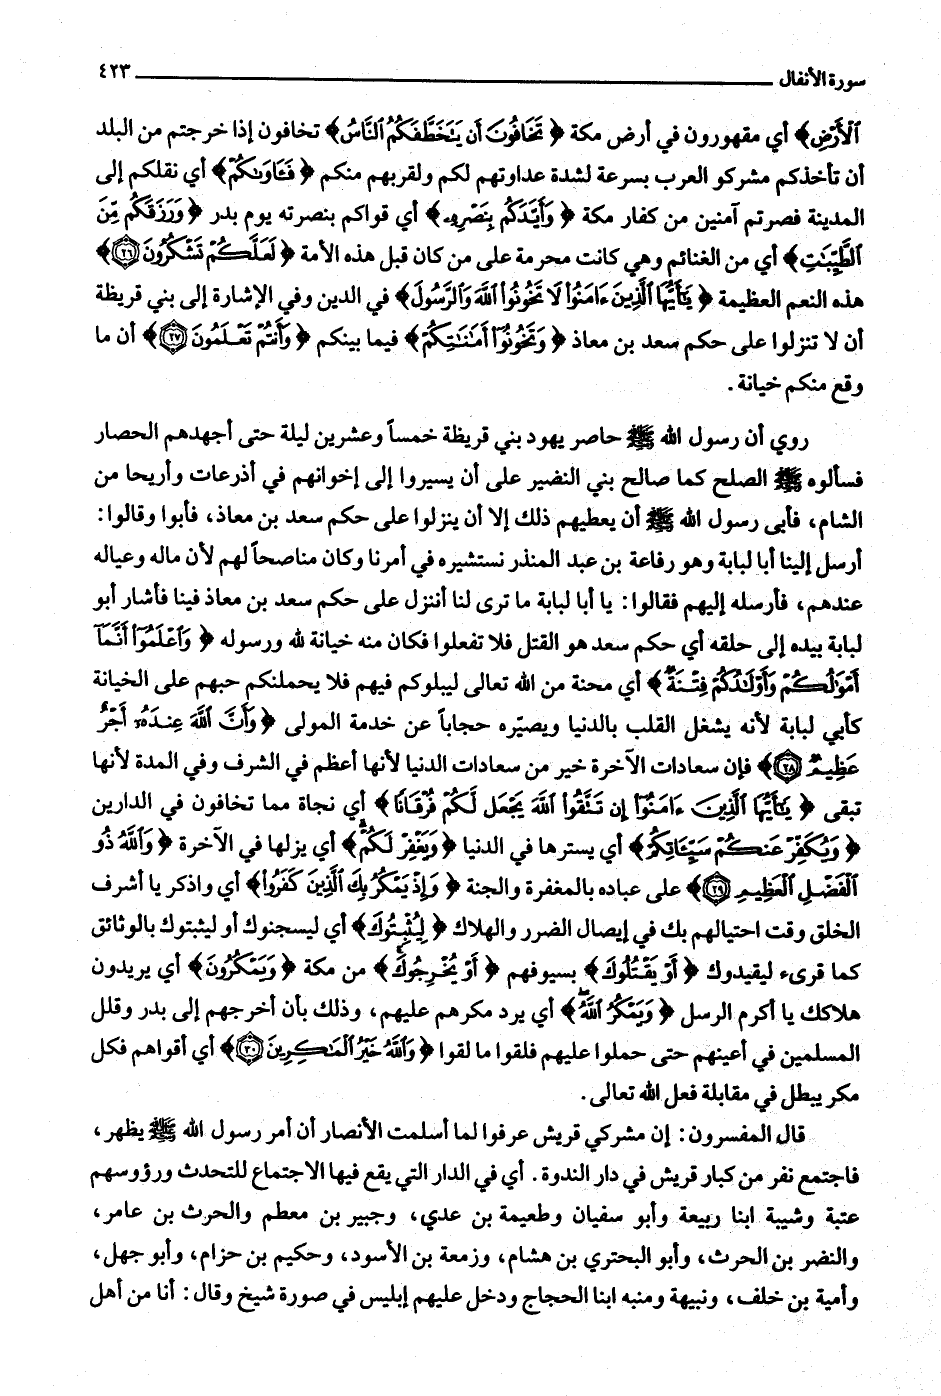 سورة الأنفال ٤٢٣
ٱلْأَرْضِ﴾ أي مقهورون في أرض مكة ﴿تَخَافُونَ أَن يَتَخَطَّفَكُمُ ٱلنَّاسُ﴾ تخافون إذا خرجتم من البلد
أن تأخذكم مشركو العرب بسرعة لشدة عداوتهم لكم ولقربهم منكم ﴿فَـَٔاوَىٰكُمْ﴾ أي نقلكم إلى
المدينة فصرتم آمنين من كفار مكة ﴿وَأَيَّدَكُم بِنَصْرِهِۦ﴾ أي قواكم بنصرته يوم بدر ﴿وَرَزَقَكُم مِّنَ
ٱلطَّيِّبَـٰتِ﴾ أي من الغنائم وهي كانت محرمة على من كان قبل هذه الأمة ﴿لَعَلَّكُمْ تَشْكُرُونَ ٢٦﴾
هذه النعم العظيمة ﴿يَـٰٓأَيُّهَا ٱلَّذِينَ ءَامَنُوا۟ لَا تَخُونُوا۟ ٱللَّهَ وَٱلرَّسُولَ﴾ في الدين وفي الإشارة إلى بني قريظة
أن لا تنزلوا على حكم سعد بن معاذ ﴿وَتَخُونُوٓا۟ أَمَـٰنَـٰتِكُمْ﴾ فيما بينكم ﴿وَأَنتُمْ تَعْلَمُونَ ٢٧﴾ أن ما
وقع منكم خيانة.
روي أن رسول الله ﷺ حاصر يهود بني قريظة خمساً وعشرين ليلة حتى أجهدهم الحصار
فسألوه ﷺ الصلح كما صالح بني النضير على أن يسيروا إلى إخوانهم في أذرعات وأريحا من
الشام، فأبى رسول الله ﷺ أن يعطيهم ذلك إلا أن ينزلوا على حكم سعد بن معاذ، فأبوا وقالوا:
أرسل إلينا أبا لبابة وهو رفاعة بن عبد المنذر نستشيره في أمرنا وكان مناصحاً لهم لأن ماله وعياله
عندهم، فأرسله إليهم فقالوا: يا أبا لبابة ما ترى لنا أننزل على حكم سعد بن معاذ فينا فأشار أبو
لبابة بيده إلى حلقه أي حكم سعد هو القتل فلا تفعلوا فكان منه خيانة لله ورسوله ﴿وَٱعْلَمُوٓا۟ أَنَّمَآ
أَمْوَٰلُكُمْ وَأَوْلَـٰدُكُمْ فِتْنَةٌ﴾ أي محنة من الله تعالى ليبلوكم فيهم فلا يحملنكم حبهم على الخيانة
كأبي لبابة لأنه يشغل القلب بالدنيا ويصيّره حجاباً عن خدمة المولى ﴿وَأَنَّ ٱللَّهَ عِندَهُۥٓ أَجْرٌ
عَظِيمٌ ٢٨﴾ فإن سعادات الآخرة خير من سعادات الدنيا لأنها أعظم في الشرف وفي المدة لأنها
تبقى ﴿يَـٰٓأَيُّهَا ٱلَّذِينَ ءَامَنُوٓا۟ إِن تَتَّقُوا۟ ٱللَّهَ يَجْعَل لَّكُمْ فُرْقَانًا﴾ أي نجاة مما تخافون في الدارين
﴿وَيُكَفِّرْ عَنكُمْ سَيِّـَٔاتِكُمْ﴾ أي يسترها في الدنيا ﴿وَيَغْفِرْ لَكُمْ﴾ أي يزلها في الآخرة ﴿وَٱللَّهُ ذُو
ٱلْفَضْلِ ٱلْعَظِيمِ ٢٩﴾ على عباده بالمغفرة والجنة ﴿وَإِذْ يَمْكُرُ بِكَ ٱلَّذِينَ كَفَرُوا۟﴾ أي واذكر يا أشرف
الخلق وقت احتيالهم بك في إيصال الضرر والهلاك ﴿لِيُثْبِتُوكَ﴾ أي ليسجنوك أو ليثبتوك بالوثائق
كما قرىء ليقيدوك ﴿أَوْ يَقْتُلُوكَ﴾ بسيوفهم ﴿أَوْ يُخْرِجُوكَ﴾ من مكة ﴿وَيَمْكُرُونَ﴾ أي يريدون
هلاكك يا أكرم الرسل ﴿وَيَمْكُرُ ٱللَّهُ﴾ أي يرد مكرهم عليهم، وذلك بأن أخرجهم إلى بدر وقلل
المسلمين في أعينهم حتى حملوا عليهم فلقوا ما لقوا ﴿وَٱللَّهُ خَيْرُ ٱلْمَـٰكِرِينَ ٣٠﴾ أي أقواهم فكل
مكر يبطل في مقابلة فعل الله تعالى.
قال المفسرون: إن مشركي قريش عرفوا لما أسلمت الأنصار أن أمر رسول الله ﷺ يظهر،
فاجتمع نفر من كبار قريش في دار الندوة. أي في الدار التي يقع فيها الاجتماع للتحدث ورؤوسهم
عتبة وشيبة ابنا ربيعة وأبو سفيان وطعيمة بن عدي، وجبير بن معطم والحرث بن عامر،
والنضر بن الحرث، وأبو البحتري بن هشام، وزمعة بن الأسود، وحكيم بن حزام، وأبو جهل،
وأمية بن خلف، ونبيهة ومنبه ابنا الحجاج ودخل عليهم إبليس في صورة شيخ وقال: أنا من أهل